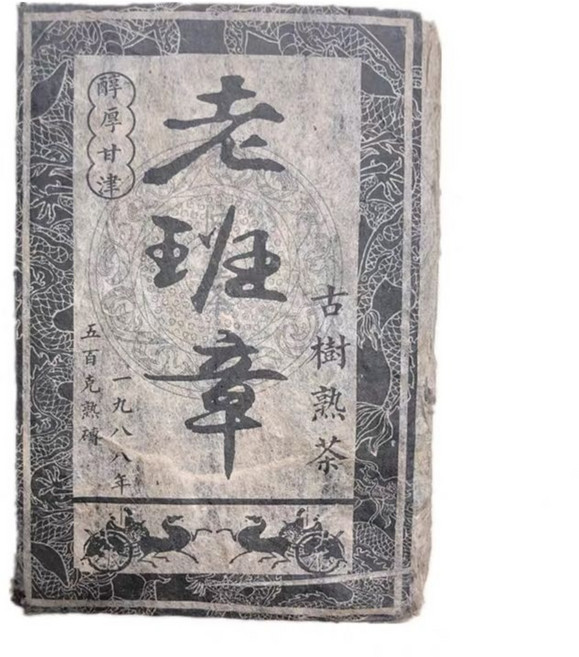 古樹熟茶
老班章
醇厚甘津
一九八八年
五百克熟磚